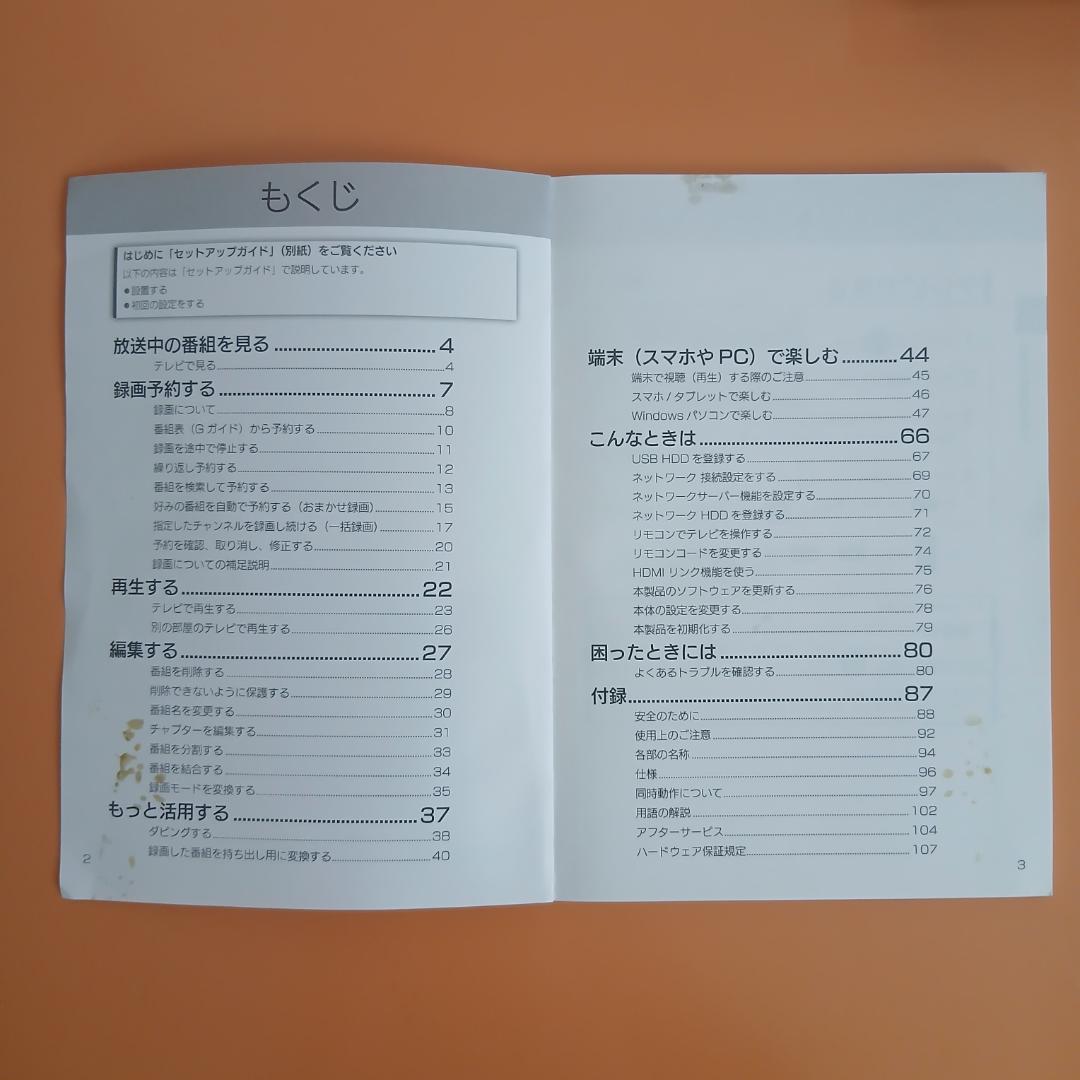 もくじ
はじめに「セットアップガイド」(別紙)をご覧ください
以下の内容は「セットアップガイド」で説明しています。
●設置する
●初回の設定をする
放送中の番組を見る 4
テレビで見る 4
録画予約する 7
録画について 8
番組表(Gガイド)から予約する 10
録画を途中で停止する 11
繰り返し予約する 12
番組を検索して予約する 13
好みの番組を自動で予約する(おまかせ録画) 15
指定したチャンネルを録画し続ける(一括録画) 17
予約を確認、取り消し、修正する 20
録画についての補足説明 21
再生する 22
テレビで再生する 23
別の部屋のテレビで再生する 26
編集する 27
番組を削除する 28
削除できないように保護する 29
番組名を変更する 30
チャプターを編集する 31
番組を分割する 33
番組を結合する 34
録画モードを変換する 35
もっと活用する 37
ダビングする 38
録画した番組を持ち出し用に変換する 40
2
端末(スマホやPC)で楽しむ 44
端末で視聴(再生)する際のご注意 45
スマホ/タブレットで楽しむ 46
Windowsパソコンで楽しむ 47
こんなときは 66
USB HDDを登録する 67
ネットワーク接続設定をする 69
ネットワークサーバー機能を設定する 70
ネットワークHDDを登録する 71
リモコンでテレビを操作する 72
リモコンコードを変更する 74
HDMIリンク機能を使う 75
本製品のソフトウェアを更新する 76
本体の設定を変更する 78
本製品を初期化する 79
困ったときには 80
よくあるトラブルを確認する 80
付録 87
安全のために 88
使用上のご注意 92
各部の名称 94
仕様 96
同時動作について 97
用語の解説 102
アフターサービス 104
ハードウェア保証規定 107
3